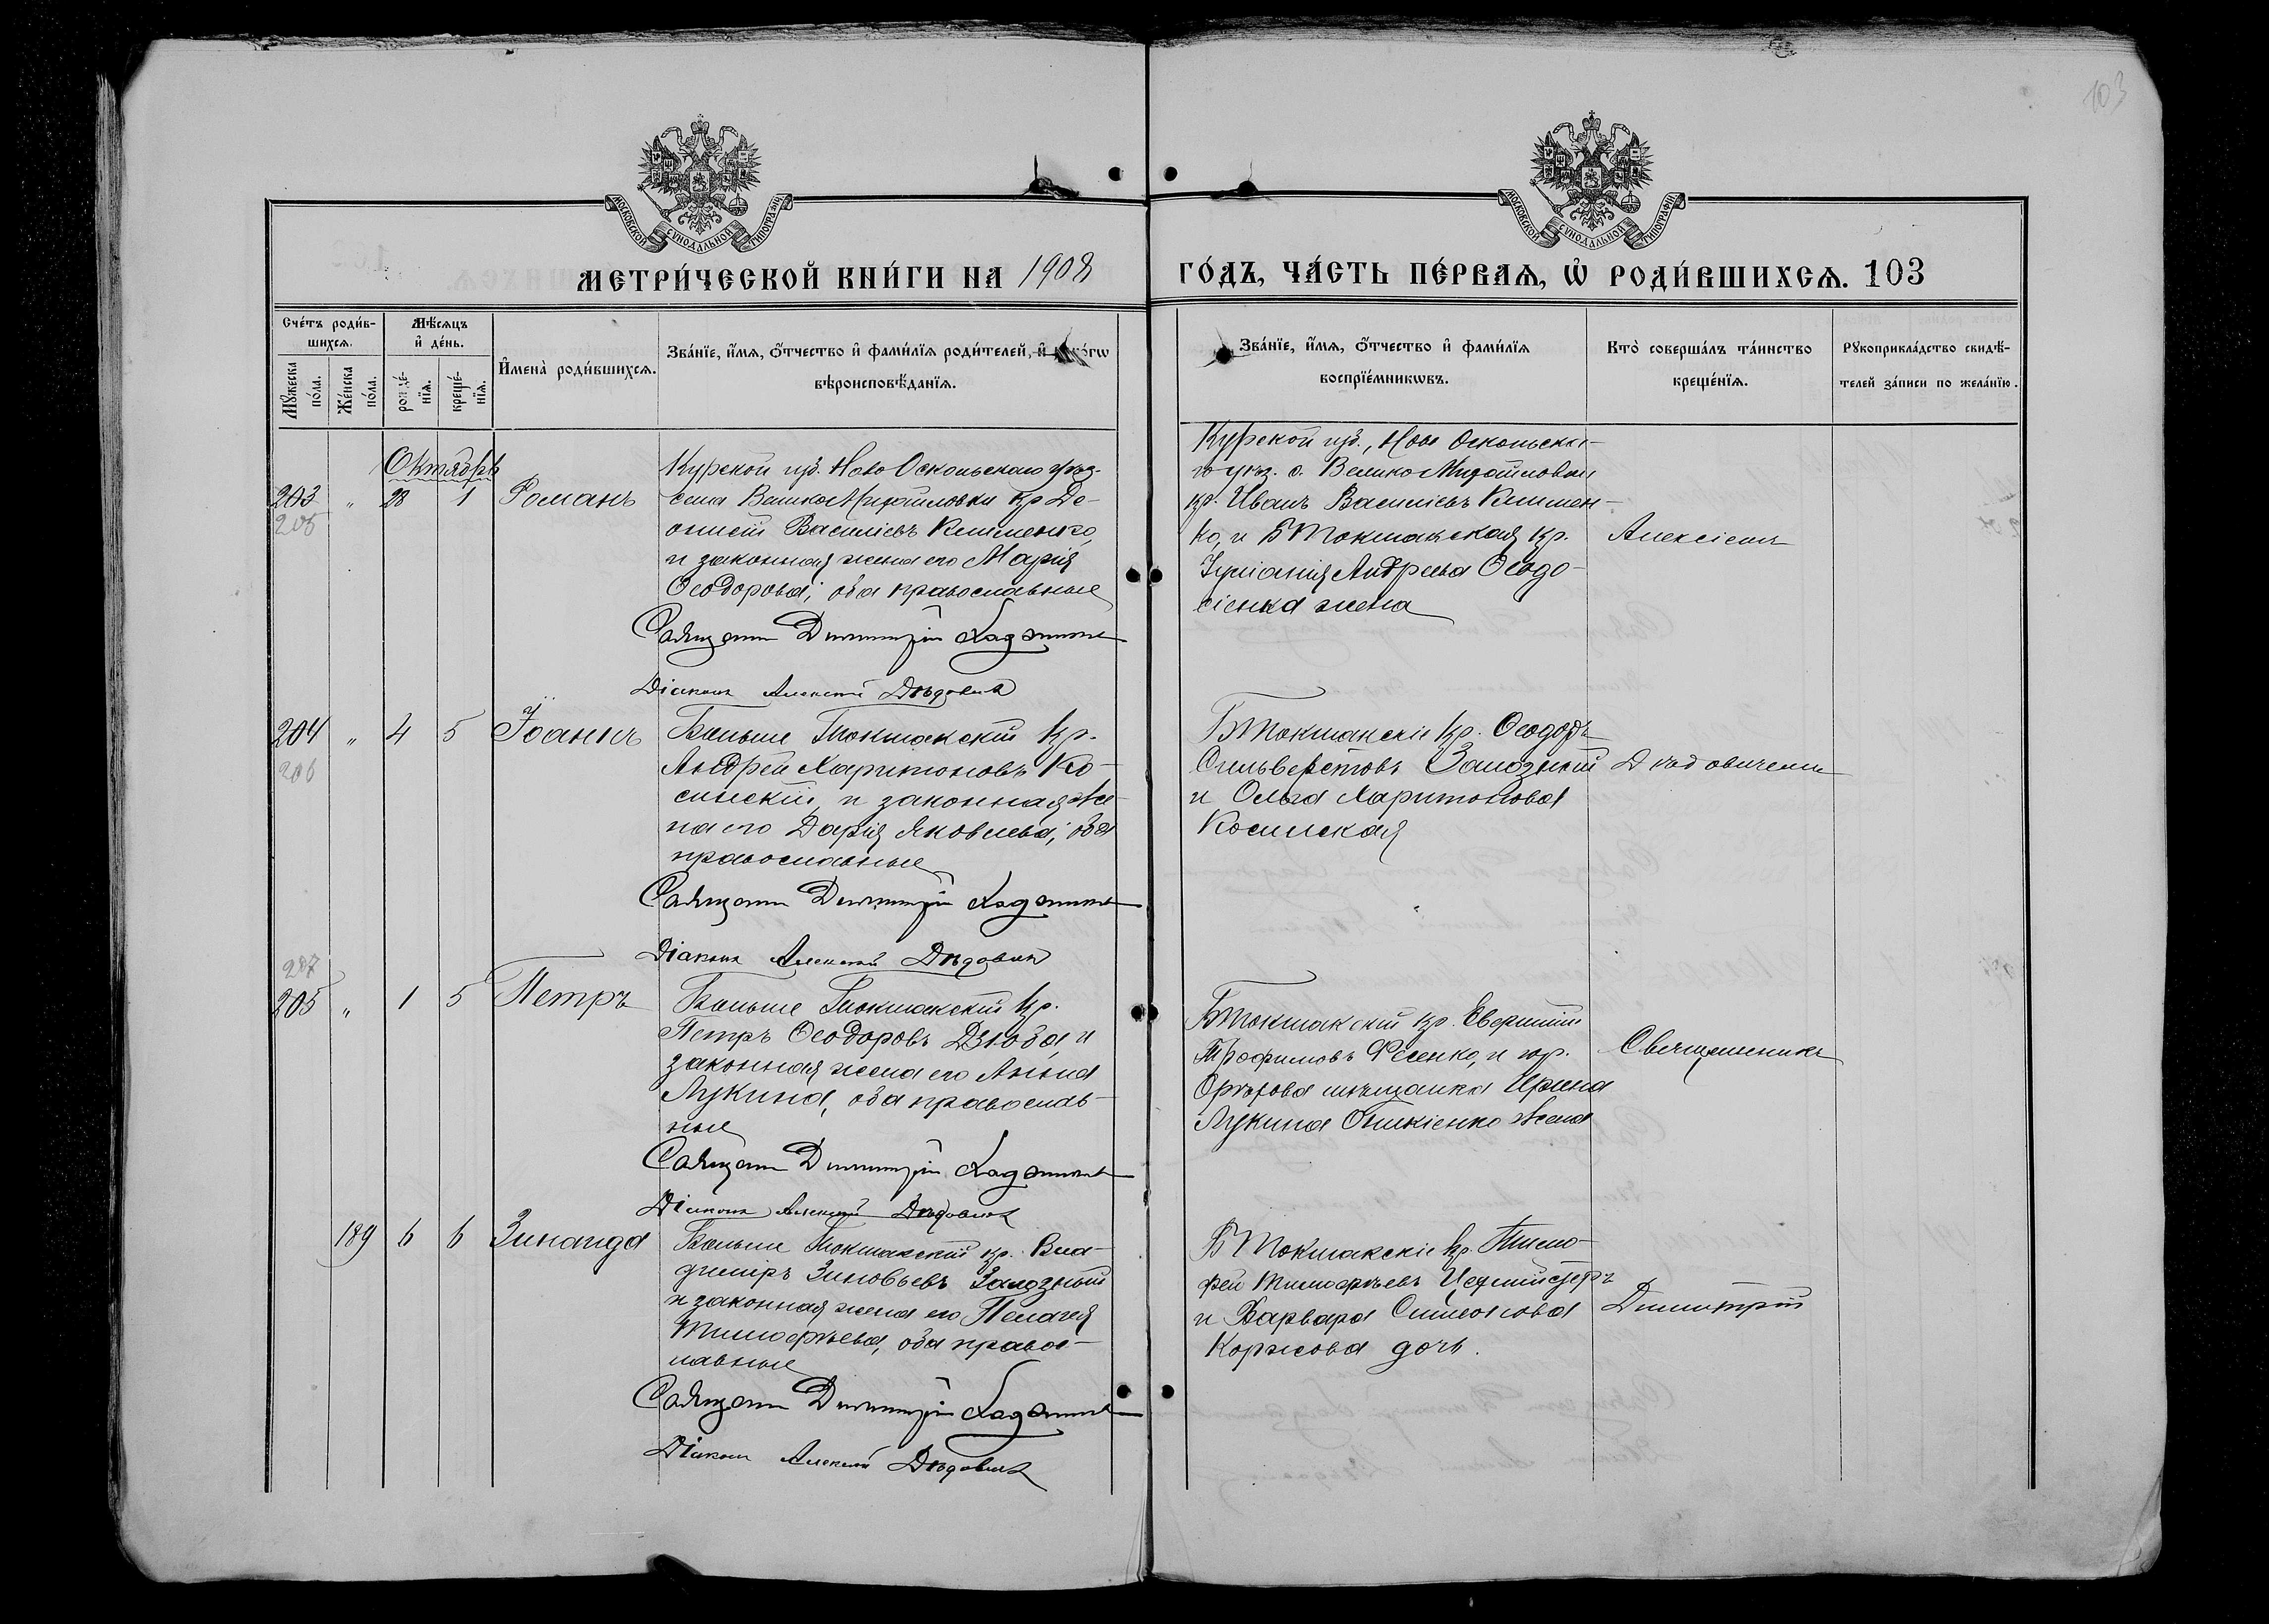 103
МОСКОВСКОЙ СѴНОДАЛЬНОЙ ТИПОГРАФІИ
МОСКОВСКОЙ СѴНОДАЛЬНОЙ ТИПОГРАФІИ
МЕТРИ́ЧЕСКОЙ КНИ́ГИ НА 1908
ГО́ДЪ, ЧА́СТЬ ПЕ́РВАѦ, Ѡ҆ РОДИ́ВШИХСѦ. 103
Сче́тъ роди́в-
шихсѧ.
Мѣ́сѧцъ
и҆ де́нь.
Мꙋ́жеска по́ла.
Же́нска по́ла.
рожде́-
нїѧ.
креще́-
нїѧ.
И҆мена̀ роди́вшихсѧ.
Зва́нїе, и҆́мѧ, ѻ҆́тчество и҆ фами́лїѧ роди́телей, и҆
вѣроисповѣ́данїѧ.
Зва́нїе, и҆́мѧ, ѻ҆́тчество и҆ фами́лїѧ
воспрїе́мникѡвъ.
Кто̀ соверша́лъ та́инство
креще́нїѧ.
Рꙋкоприкла́дство свидѣ́-
телей за́писи по жела́нїю.
Октябрь
203 " 28 1 Романъ
205
Курской губ. Ново Оскольскаго уѣз.
села Велико Михайловки кр. Ле-
онтій Василіевъ Клименко,
и законная жена его Марія
Ѳеодорова; оба православные
Священн Димитрій
Діаконъ Алексій Дѣдович
Курской губ., Ново Оскольска-
го уѣз. с. Велико Михайловки
кр. Иванъ Василіевъ Климен-
ко, и Б Токмакская кр.
Іуліанія Андреева Ѳеодо-
сіенка жена
Алексіемъ
204 " 4 5 Іоаннъ
206
Больше Токмакскій кр.
Андрей Харитоновъ Ко-
симскій, и законная же-
на его Дарія Яковлева; оба
православные
Священн Димитрій
Діаконъ Алексій Дѣдович
Б Токмакскіе кр. Ѳеодоръ
Сильверстовъ Залозный
и Ольга Харитонова
Косимская
Дѣдовичемъ
207
205 " 1 5 Петръ
Больше Токмакскій кр.
Петръ Ѳеодоровъ Дзюба, и
законная жена его Анна
Лукина, оба православ-
ные
Священн Димитрій
Діаконъ Алексій Дѣдович
Б Токмакскій кр. Евфимій
Трофимовъ Фесенко, и гор.
Орѣхова мѣщанка Ирина
Лукина жена
Священникъ
189 6 6 Зинаида
Больше Токмакскій кр. Вла-
диміръ Зиновьевъ Залозный
и законная жена его Пелагія
Тимофеева, оба правос-
лавные
Священн Димитрій
Діаконъ Алексій Дѣдович
Б Токмакскіе кр. Тимо-
фей Тимофѣевъ
и Варвара Симеонова
Коржова дочь.
Димитрій